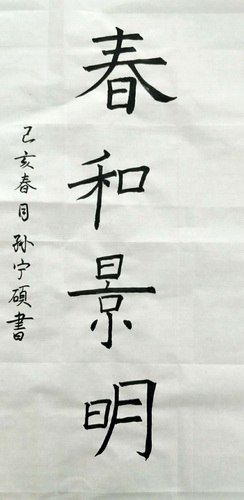 春和景明
己亥春月孙宁硕書